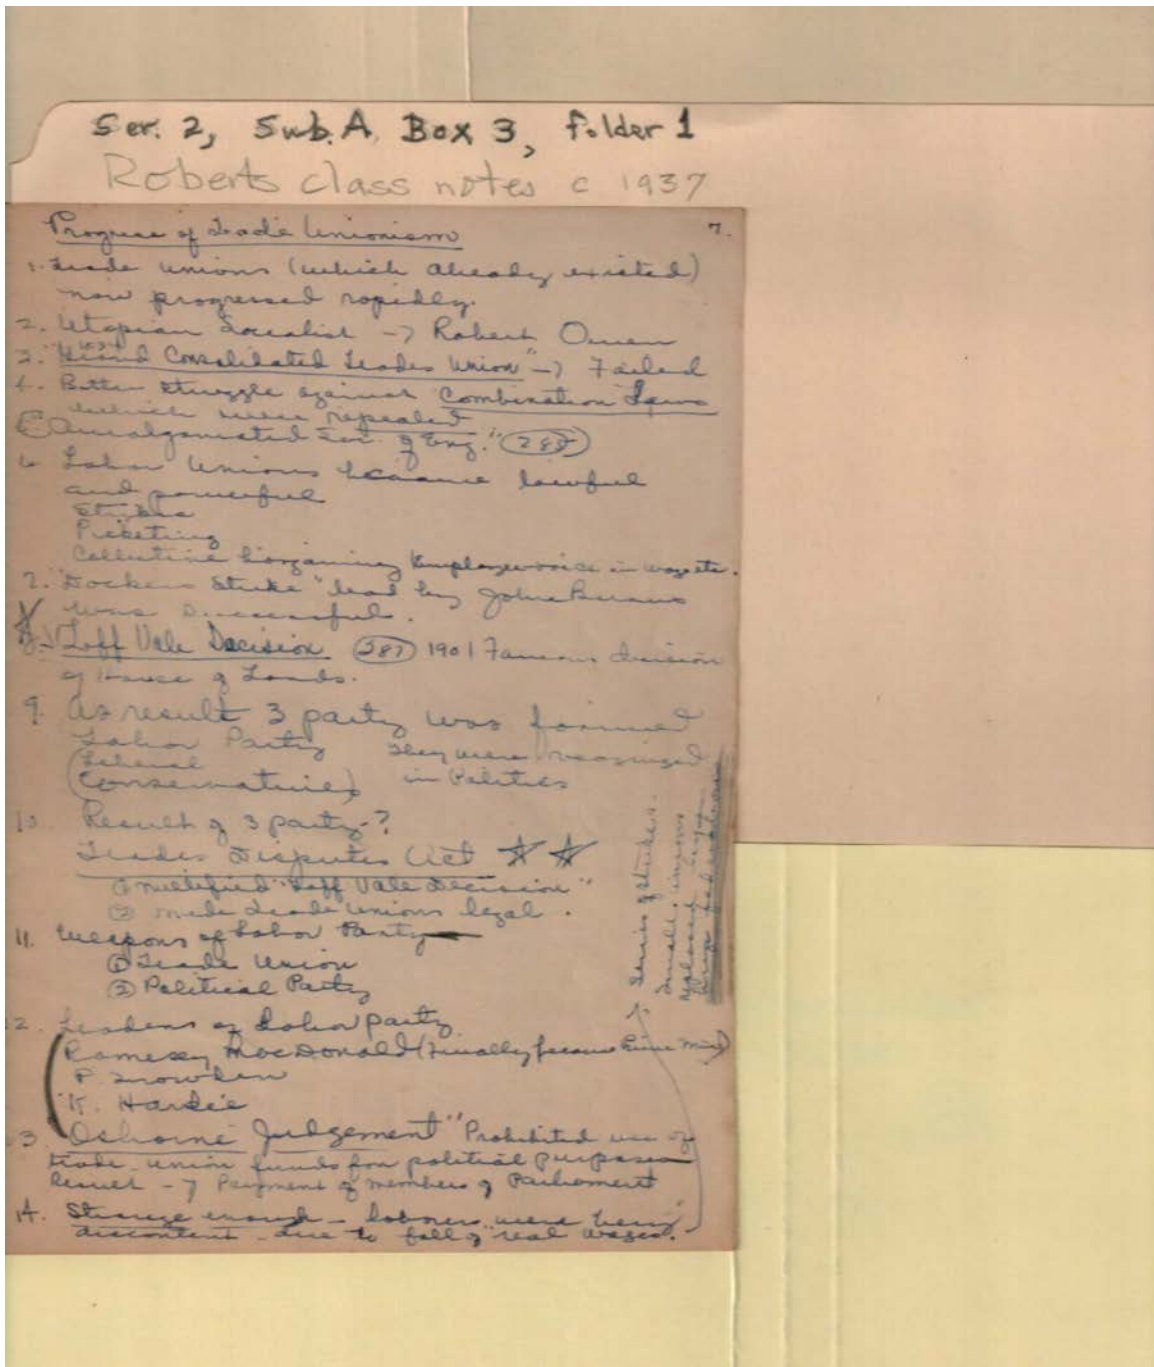 Ser. 2, Sub. A, Box 3, folder 1
Roberts class notes c 1937
7.
Progress of Trade Unionism
1. Trade unions (which already existed)
now progressed rapidly.
2. Utopian Socialist -> Robert Owen
3. "Grand Consolidated Trades Union" -> Failed
4. Bitter struggle against Combination Laws
which were repealed
"Amalgamated Soc. of Eng."
6. Labor Unions became lawful
and powerful
Strikes
Picketing
Collective bargaining Employee voice in wages etc.
7. "Dockers Strike" lead by John Burns
was successful.
8. Taff Vale Decision (287) 1901 Famous decision
of House of Lords.
9. As result 3 party was formed
Labor Party They were recognized
(Liberal in Politics
Conservatives)
10. Result of 3 party-?
Trades Disputes Act ☆ ☆
① nullified "Taff Vale Decision"
② made trade unions legal.
11. Weapons of Labor Party
① Trade Union
② Political Party
12. Leaders of Labor party
Ramesey MacDonald (Finally became Prime Min)
P Snowden
K. Hardie
13. "Osborne Judgement" Prohibited use of
trade-union funds for political purposes
Result -> Payment of members of Parliament
14. Strange enough - laborers were being
discontent - due to fall of "real wages."
-> Series of strikes.
Small unions
replaced by
large federations